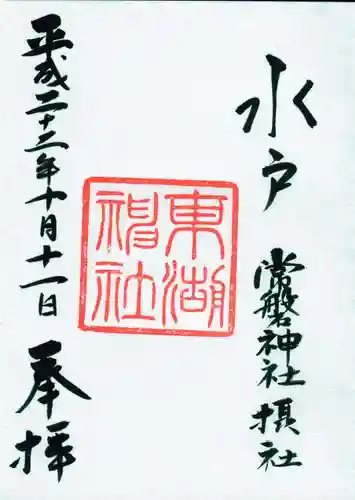 水戸
常磐神社摂社
東湖
神社
平成二十二年十月十一日
奉拝